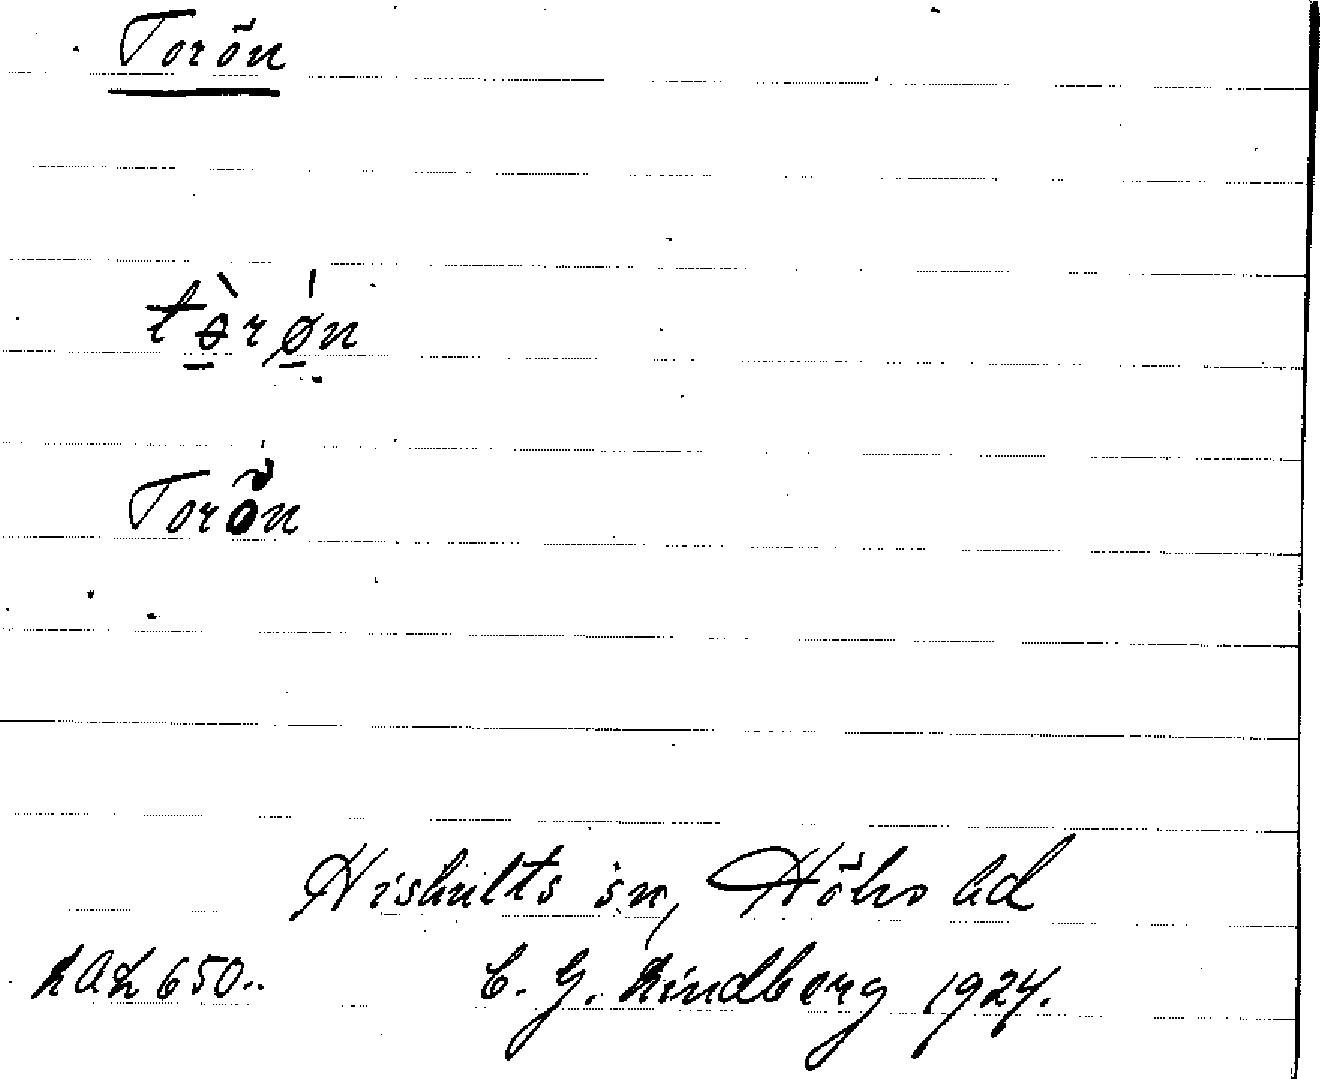 Torön
tə̀rǿn
Torön
Hishults sn, Höks hd
LAL 650.
C. G. Lindberg 1924.